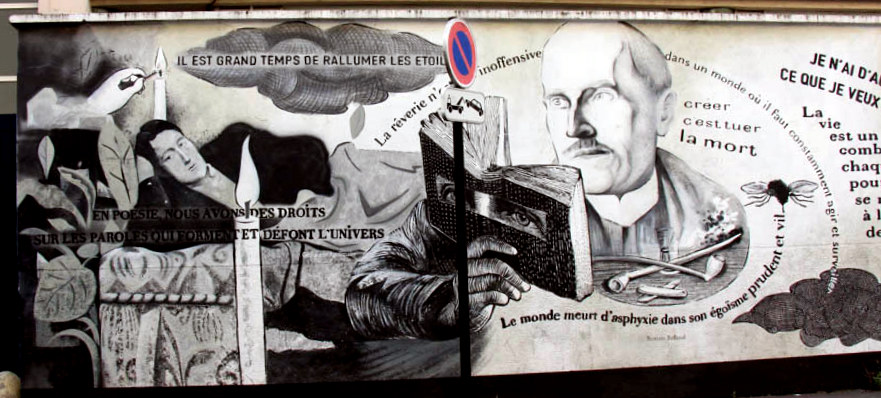 IL EST GRAND TEMPS DE RALLUMER LES ETOIL
La rêverie n' inoffensive dans un monde où il faut constamment agir et surveiller
EN POÉSIE, NOUS AVONS DES DROITS
SUR LES PAROLES QUI FORMENT ET DÉFONT L'UNIVERS
creer
c'est tuer
la mort
Le monde meurt d'asphyxie dans son égoïsme prudent et vil
Romain Rolland
JE N'AI D'A
CE QUE JE VEUX
La
vie
est un
comb
chaq
pour
se r
à l
de